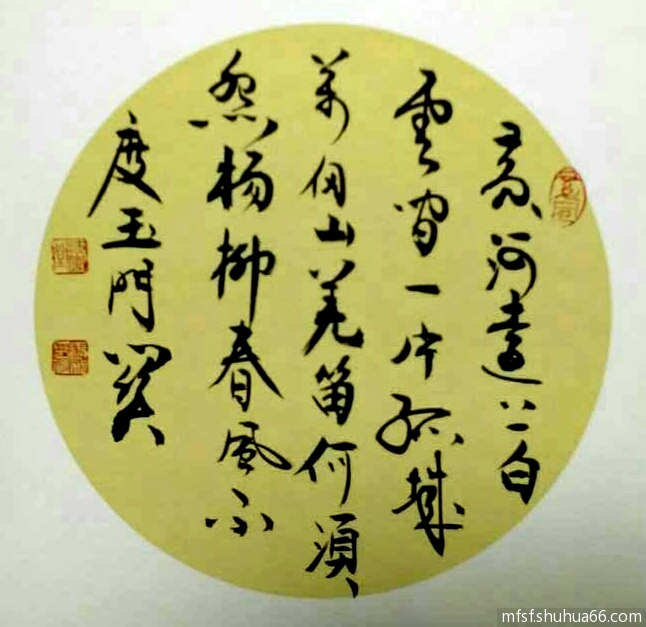 黄河遠上白
雲間一片孤城
萬仞山羌笛何須
怨楊柳春風不
度玉門關
mfsf.shuhua66.com